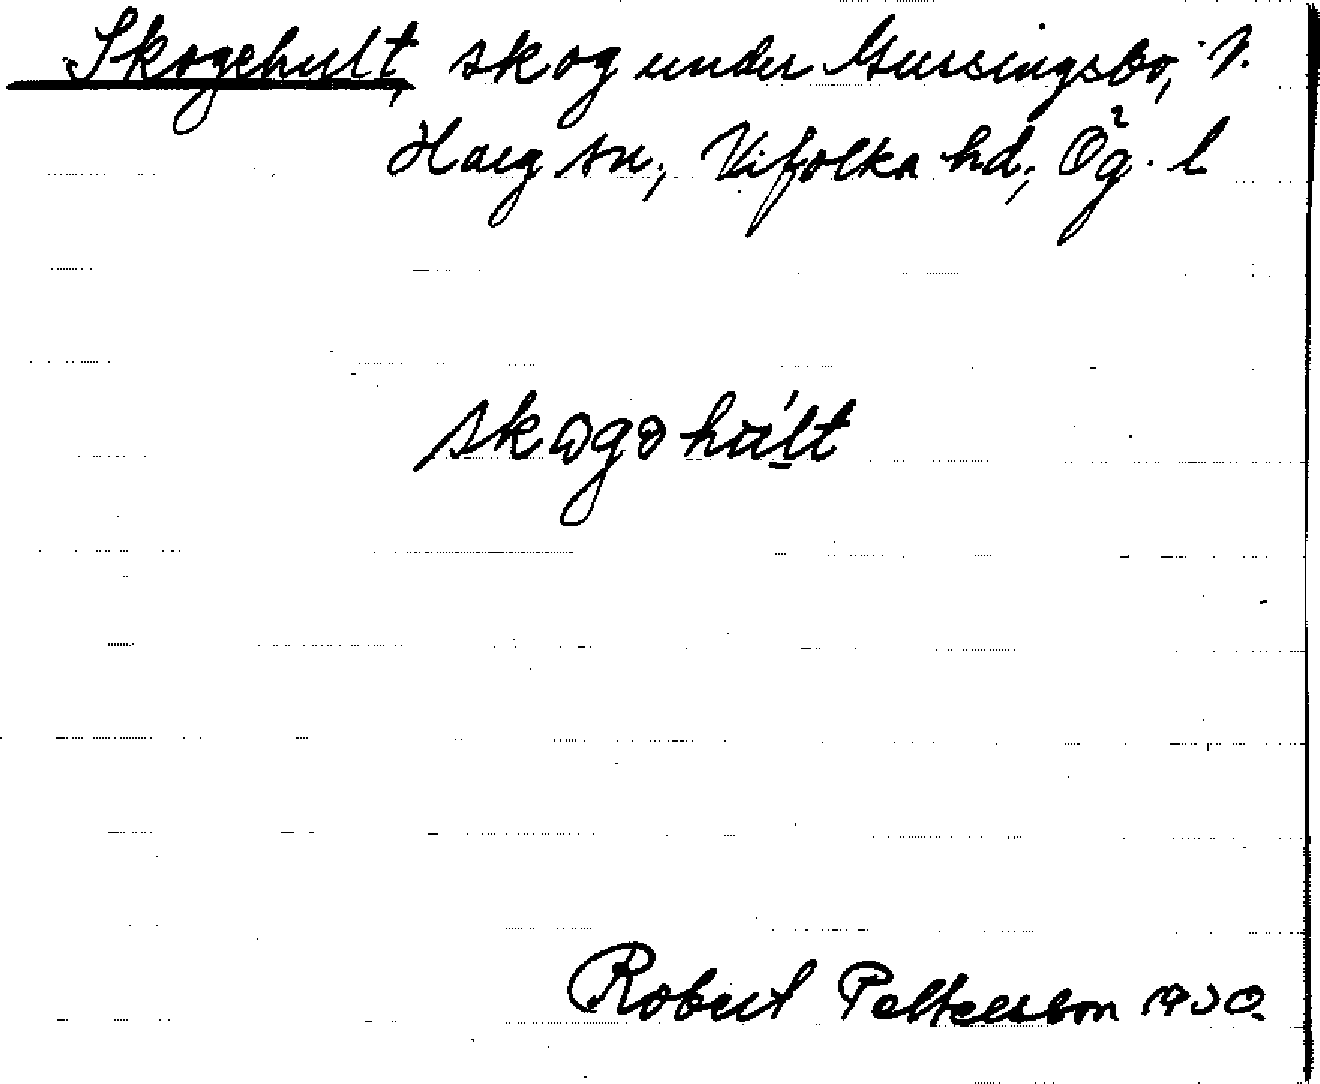 Skogehult, skog under Gursingsbo, V.
Harg sn, Vifolka hd, Ög. l
skogəhúlt
Robert Pettersson 1930.